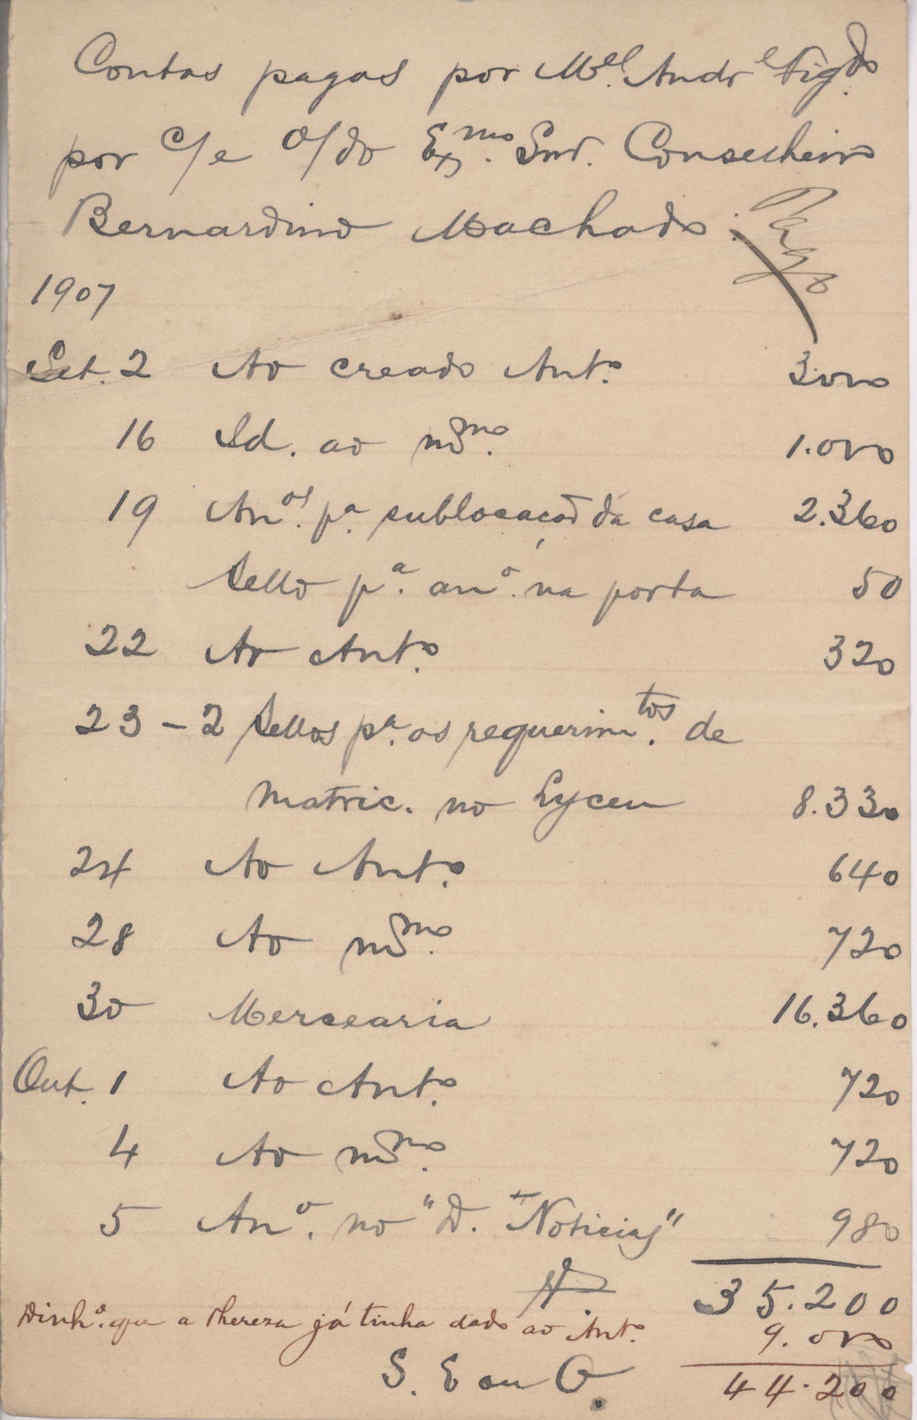 Contas pagas por M.el Andr.e Fig.do
por c/e o/do Ex.mo Snr. Conselheiro
Bernardino Machado.
Pago
1907
Set. 2 Ao creado Ant.o 3000
16 Id. ao msmo. 1.000
19 An.os p.a sublocação da casa 2.360
Sello p.a an.o na porta 50
22 Ao Ant.o 320
23 - 2 Sellos p.a os requerim.tos de
matric. no Lyceu 8.330
24 Ao Ant.o 640
28 Ao msmo. 720
30 Mercearia 16.360
Out. 1 Ao Ant.o 720
4 Ao msmo. 720
5 An.o no "D. Noticias" 980
35.200
Dinh.o que a Thereza já tinha dado ao Ant.o 9.000
S. E ou O. 44.200